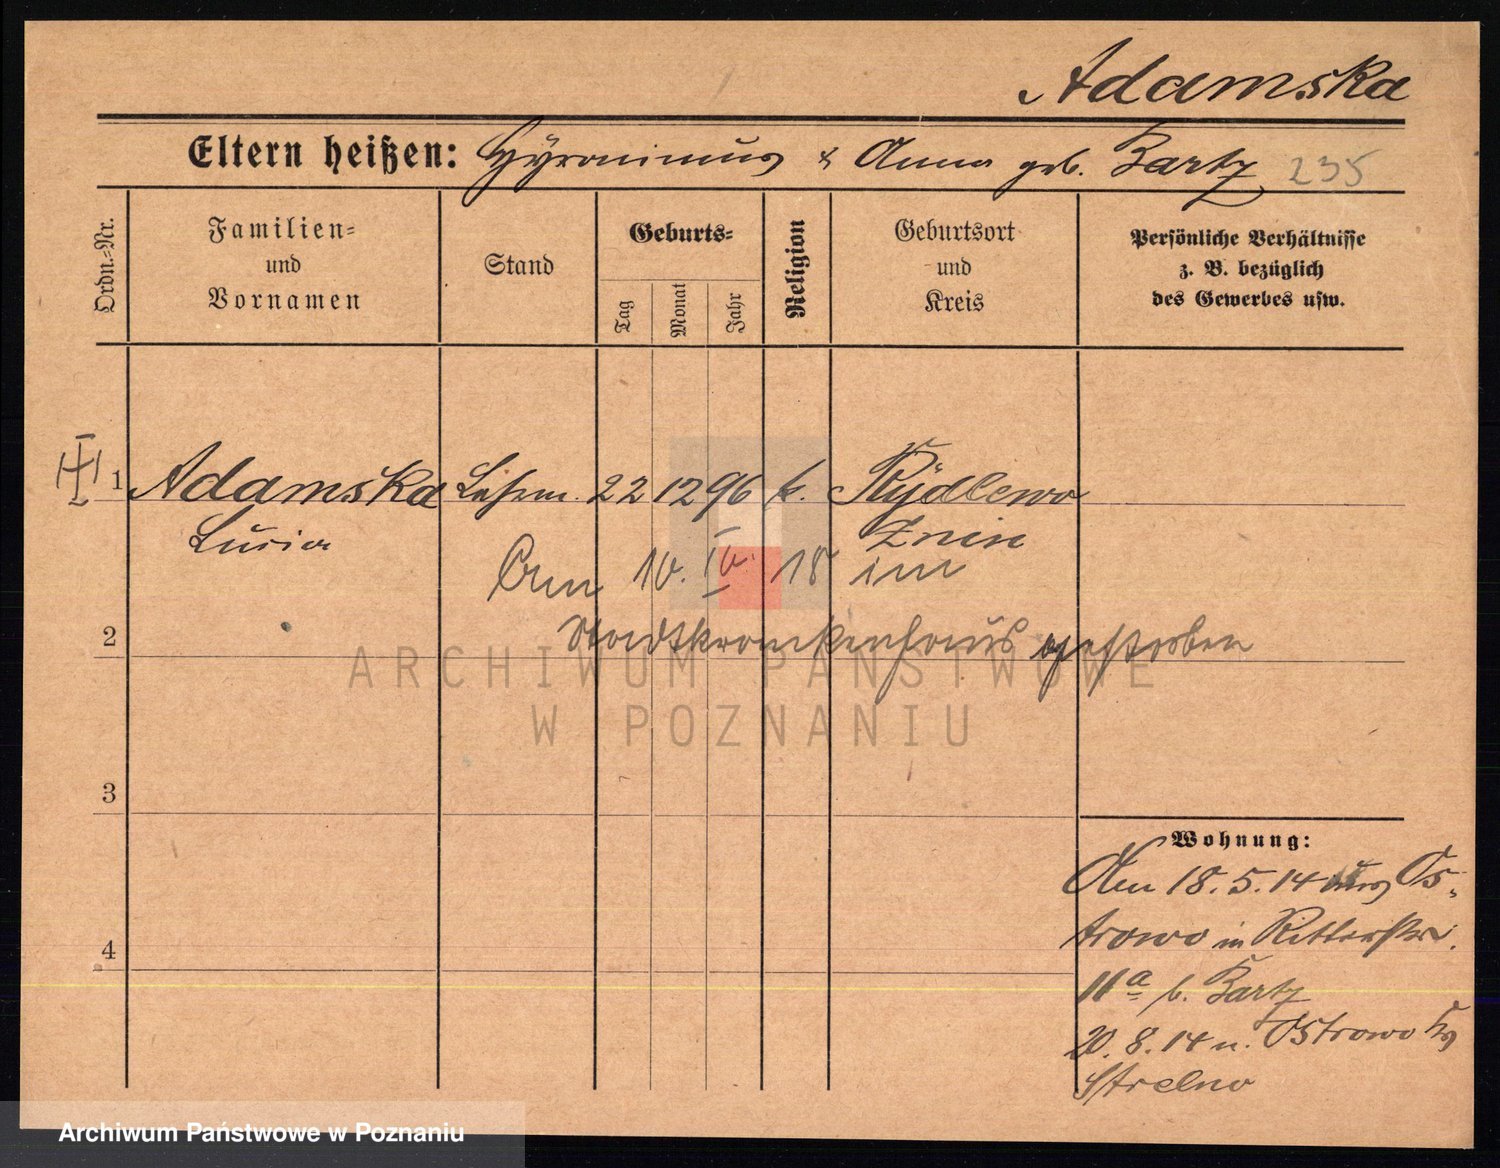 Adamska
Eltern heißen: Hÿronimus & Anna geb. Bartz 235
Ordn.=Nr.
Familien=
und
Vornamen
Stand
Geburts=
Tag
Monat
Jahr
Religion
Geburtsort
und
Kreis
Persönliche Verhältnisse
z. B. bezüglich
des Gewerbes usw.
1 Adamska Lehrn. 22 12 96 k. Rÿdlewo
Lucia Znin
Am 10. IV. 18 im
Stadtkrankenhaus gestorben
2
3
4
Wohnung:
Am 18.5.14 aus Os-
trowo in Ritterstr.
11a b. Bartz
20.8.14 n. Ostrowo Krs
Strelno
ARCHIWUM PAŃSTWOWE
W POZNANIU
Archiwum Państwowe w Poznaniu